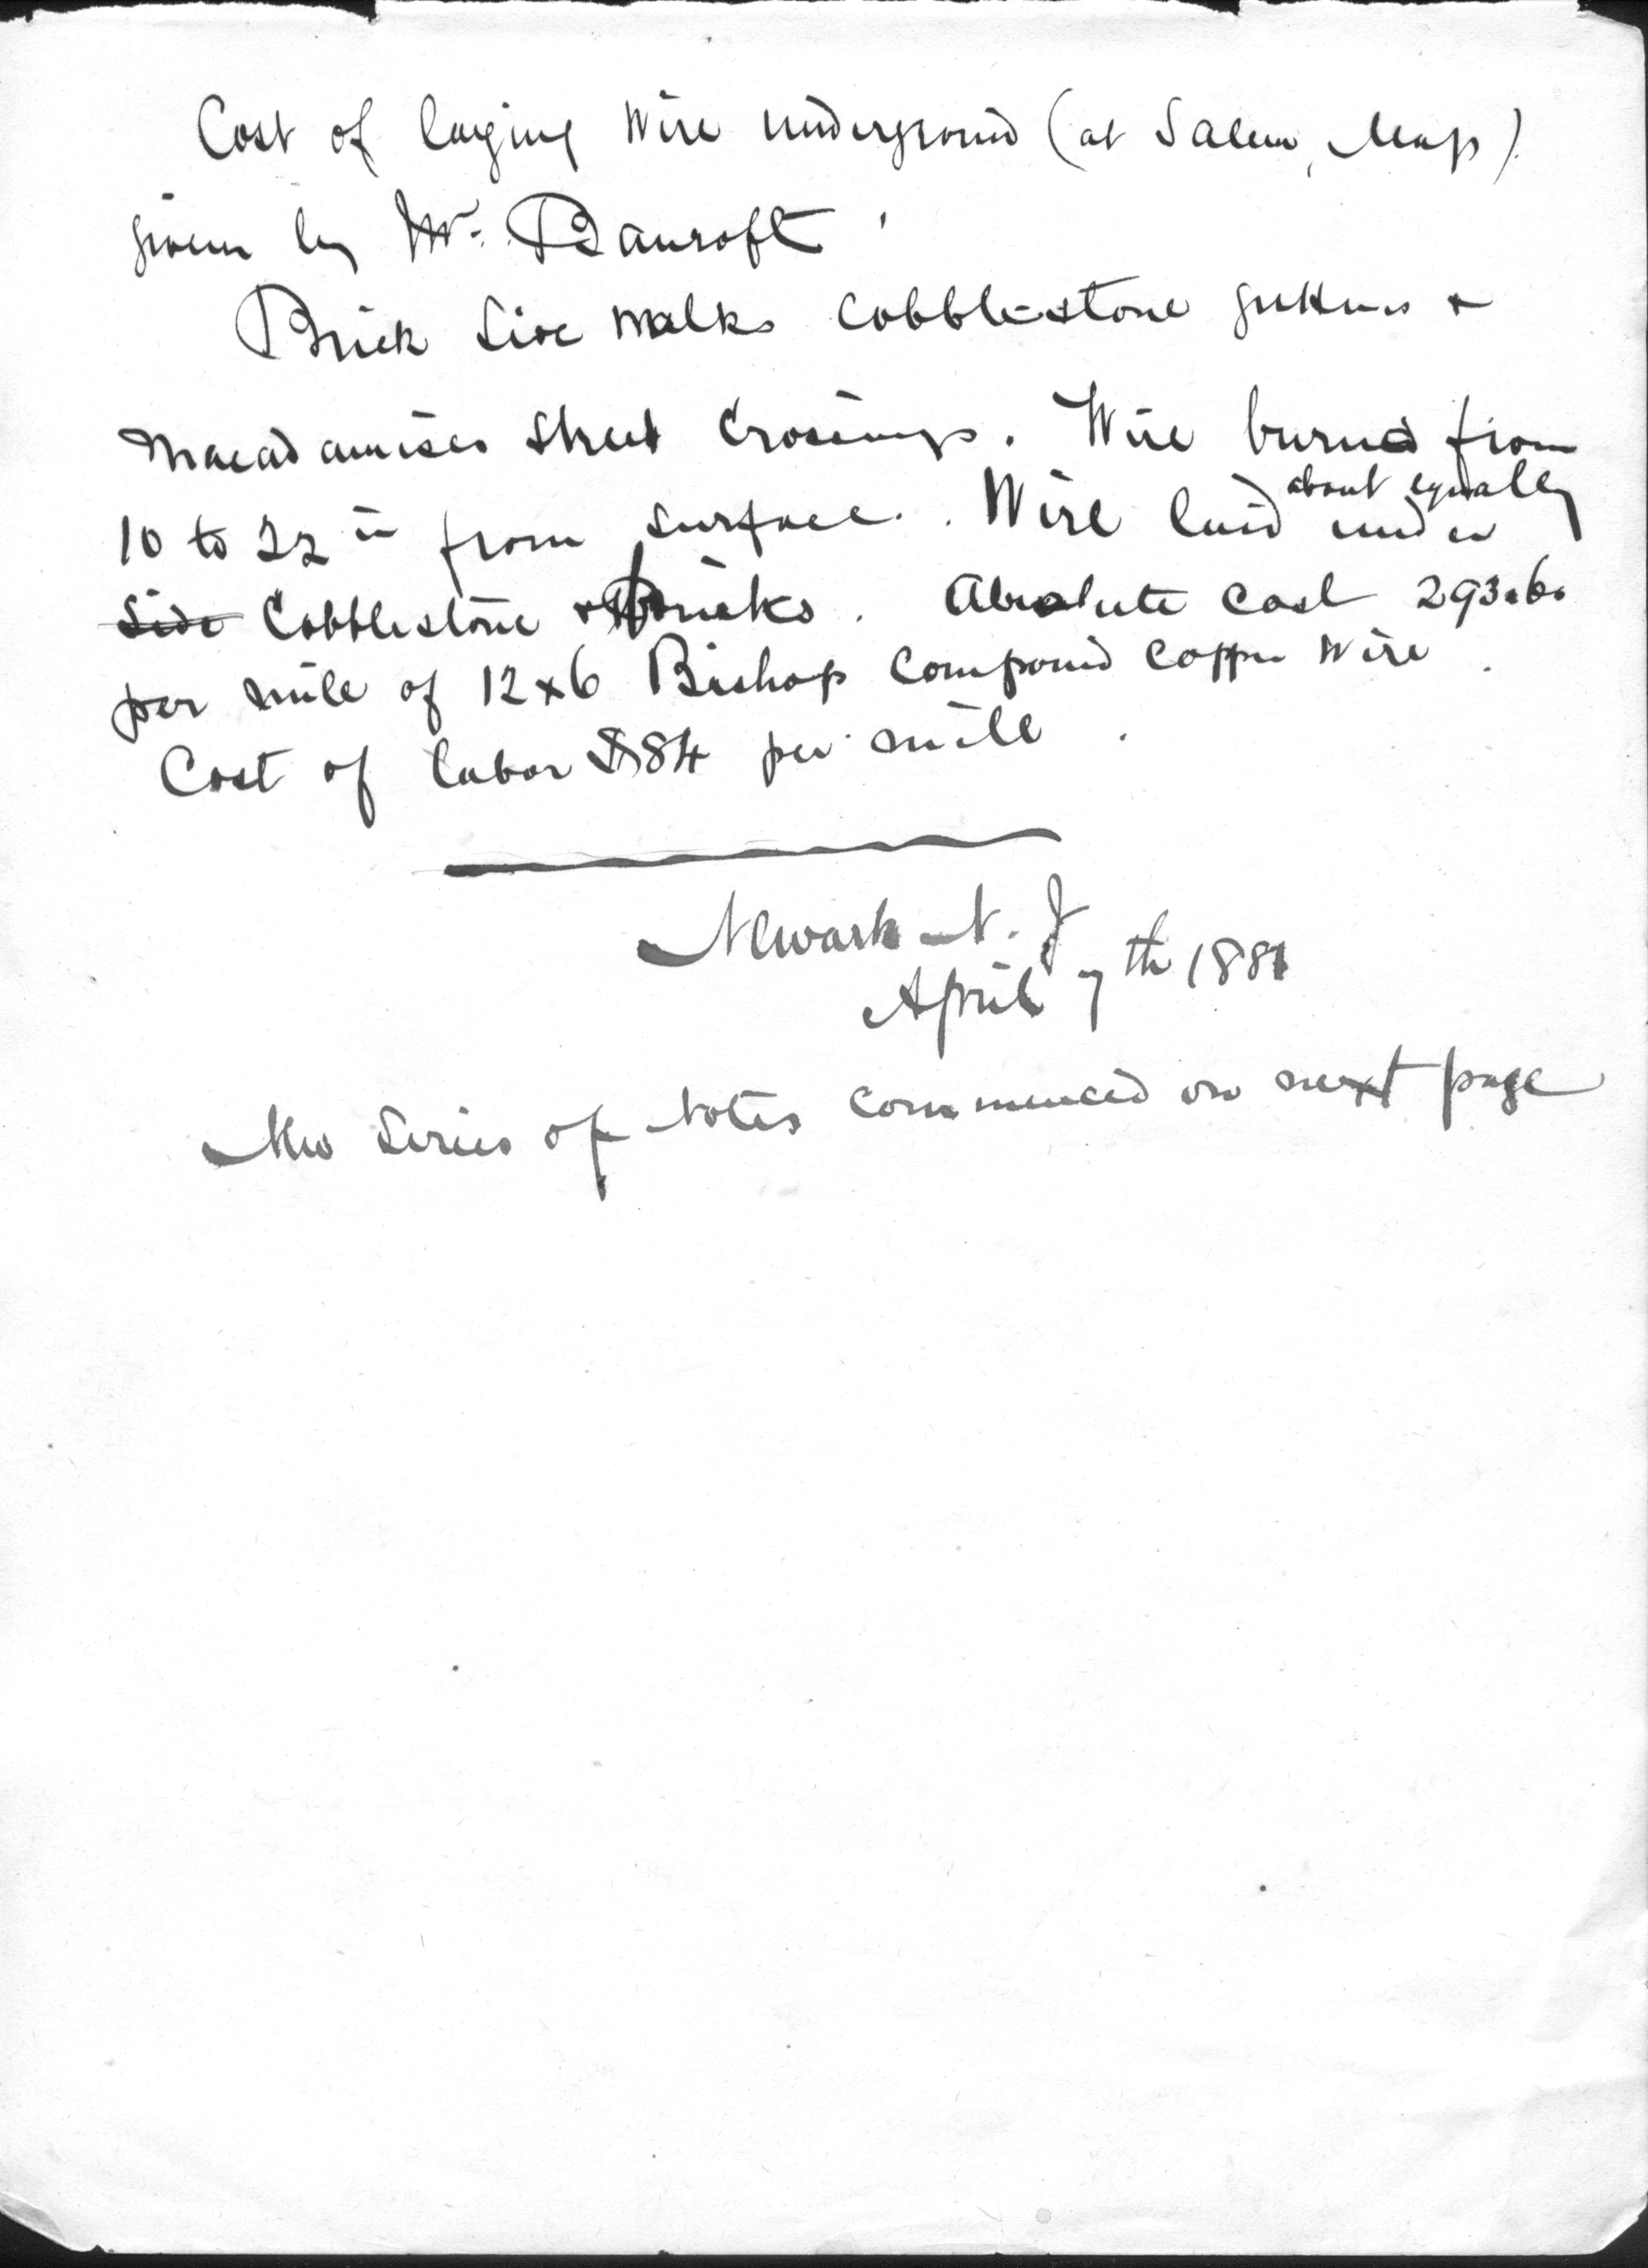 Cost of laying Wire underground (at Salem, Mass).
given by Mr. Bancroft
Brick Side walks Cobblestone gutters &
Macadamised Street Crossings. Wire buried from
10 to 22 in from surface. Wire laid about equally under
Side Cobblestone & Bricks. Absolute cost 293.60
per mile of 12x6 Bishop Compound Copper Wire.
Cost of labor $84 per mile.
Newark N. J
April 7th 1881
New Series of Notes commenced on next page